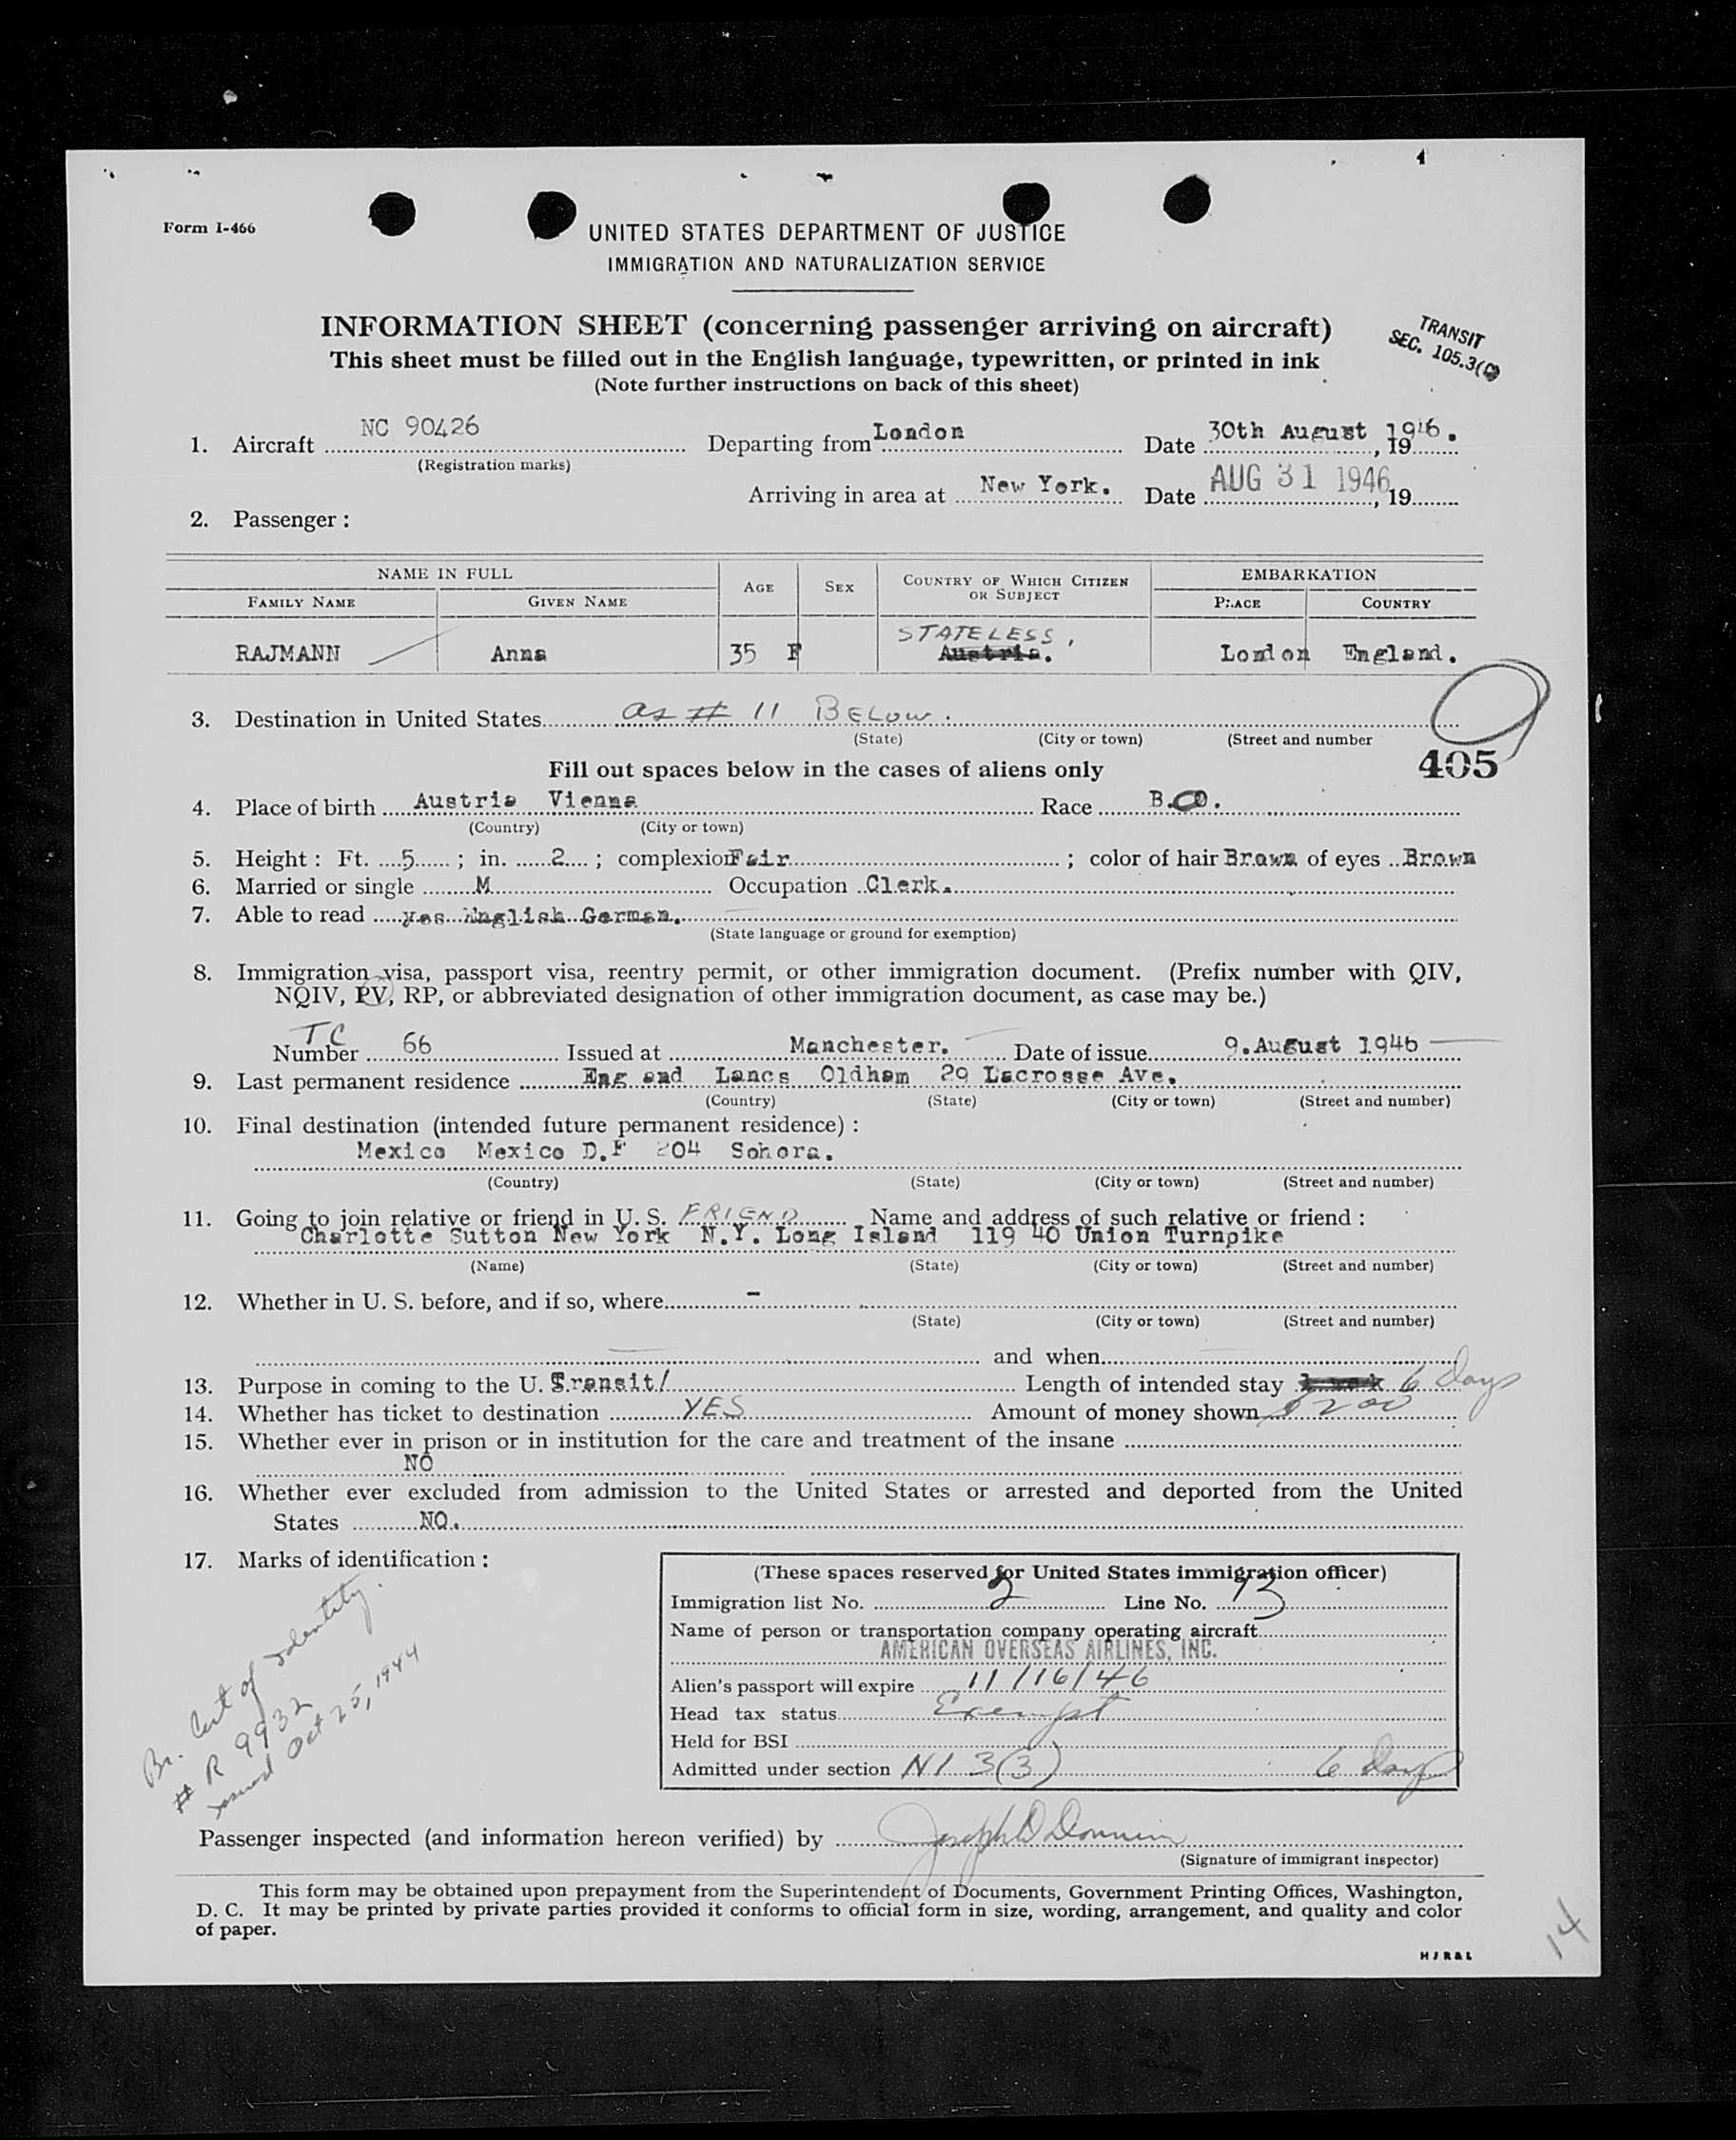 Form I-466
UNITED STATES DEPARTMENT OF JUSTICE
IMMIGRATION AND NATURALIZATION SERVICE
INFORMATION SHEET (concerning passenger arriving on aircraft)
TRANSIT
SEC. 105.3(
This sheet must be filled out in the English language, typewritten, or printed in ink
(Note further instructions on back of this sheet)
1. Aircraft NC 90426 Departing from London Date 30th August 1946. , 19
(Registration marks)
Arriving in area at New York. Date AUG 31 1946 , 19
2. Passenger :
NAME IN FULL AGE SEX COUNTRY OF WHICH CITIZEN OR SUBJECT EMBARKATION
FAMILY NAME GIVEN NAME PLACE COUNTRY
STATELESS,
RAJMANN Anna 35 F Austria. London England.
3. Destination in United States as # 11 BELOW.
(State) (City or town) (Street and number
405
Fill out spaces below in the cases of aliens only
4. Place of birth Austria Vienna Race B.
(Country) (City or town)
5. Height : Ft. 5 ; in. 2 ; complexion Fair ; color of hair Brown of eyes Brown
6. Married or single M Occupation Clerk.
7. Able to read yes English German.
(State language or ground for exemption)
8. Immigration visa, passport visa, reentry permit, or other immigration document. (Prefix number with QIV,
NQIV, PV, RP, or abbreviated designation of other immigration document, as case may be.)
TC
Number 66 Issued at Manchester. Date of issue 9.August 1946
9. Last permanent residence Eng and Lancs Oldham 29 Lacrosse Ave.
(Country) (State) (City or town) (Street and number)
10. Final destination (intended future permanent residence) :
Mexico Mexico D.F 204 Sohora.
(Country) (State) (City or town) (Street and number)
11. Going to join relative or friend in U. S. FRIEND Name and address of such relative or friend :
Charlotte Sutton New York N.Y. Long Island 119 40 Union Turnpike
(Name) (State) (City or town) (Street and number)
12. Whether in U. S. before, and if so, where -
(State) (City or town) (Street and number)
and when
13. Purpose in coming to the U. S. Transit/ Length of intended stay 6 days
14. Whether has ticket to destination YES Amount of money shown $200
15. Whether ever in prison or in institution for the care and treatment of the insane
NO
16. Whether ever excluded from admission to the United States or arrested and deported from the United
States NO.
17. Marks of identification :
Br. Cert of Identity.
# R 9932
issued Oct 25, 1944
(These spaces reserved for United States immigration officer)
Immigration list No. 2 Line No. 13
Name of person or transportation company operating aircraft
AMERICAN OVERSEAS AIRLINES, INC.
Alien's passport will expire 11/16/46
Head tax status Exempt
Held for BSI
Admitted under section N1 3(3) 6 days
Passenger inspected (and information hereon verified) by Joseph D
(Signature of immigrant inspector)
This form may be obtained upon prepayment from the Superintendent of Documents, Government Printing Offices, Washington,
D. C. It may be printed by private parties provided it conforms to official form in size, wording, arrangement, and quality and color
of paper.
14